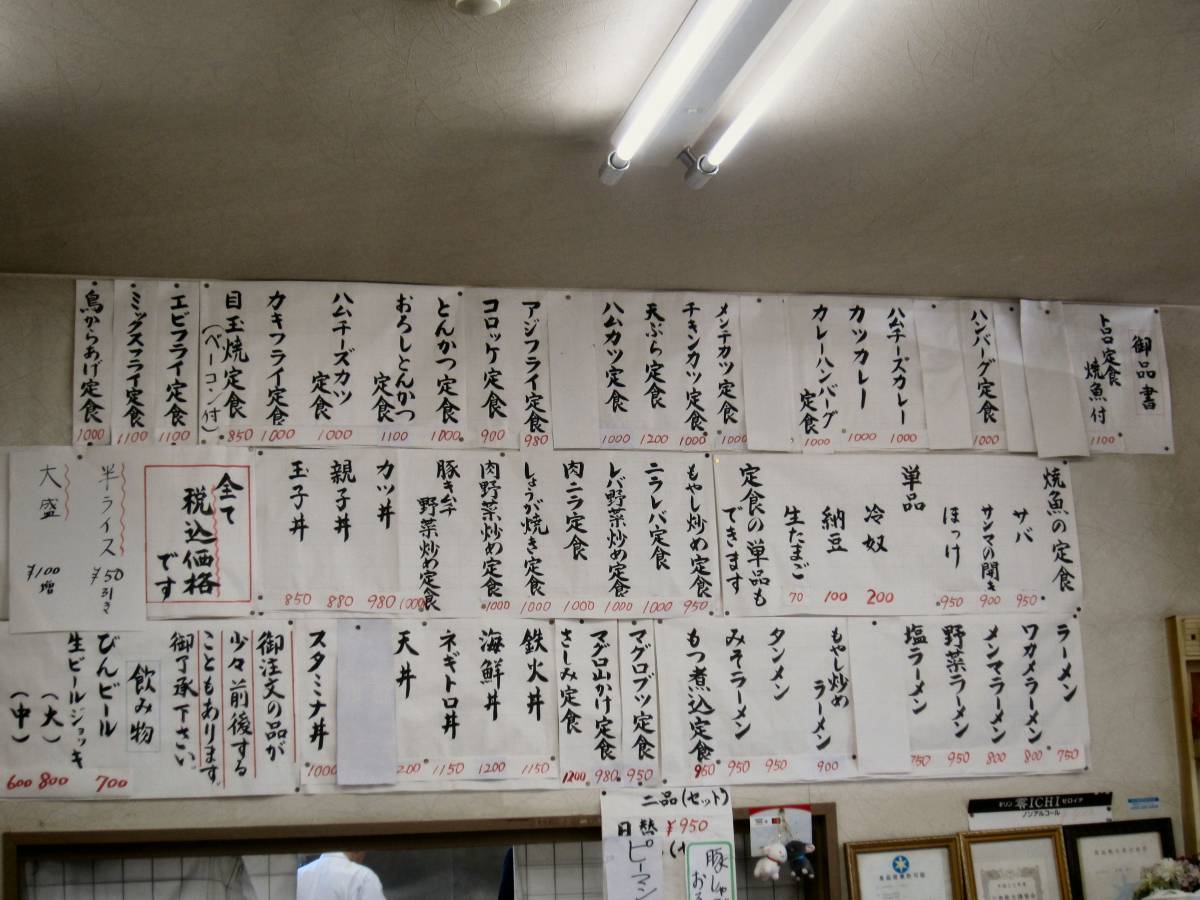 御品書
トロロ定食
焼魚付
1100
ハンバーグ定食
1000
ハムチーズカレー
1000
カツカレー
1000
カレーハンバーグ
定食
1000
メンチカツ定食
1000
チキンカツ定食
1000
天ぷら定食
1200
ハムカツ定食
1000
アジフライ定食
980
コロッケ定食
900
とんかつ定食
1000
おろしとんかつ
定食
1100
ハムチーズカツ
定食
1000
カキフライ定食
1000
目玉焼定食
(ベーコン付)
850
エビフライ定食
1100
ミックスフライ定食
1100
鳥からあげ定食
1000
焼魚の定食
サバ
950
サンマの開き
900
ほっけ
950
単品
冷奴
200
納豆
100
生たまご
70
定食の単品も
できます
もやし炒め定食
950
ニラレバ定食
1000
レバ野菜炒め定食
1000
肉ニラ定食
1000
しょうが焼き定食
1000
肉野菜炒め定食
1000
豚キムチ
野菜炒め定食
1000
カツ丼
980
親子丼
880
玉子丼
850
全て
税込価格
です
半ライス
¥50引き
大盛
¥100増
ラーメン
750
ワカメラーメン
800
メンマラーメン
800
野菜ラーメン
950
塩ラーメン
750
もやし炒め
ラーメン
900
タンメン
950
みそラーメン
950
もつ煮込定食
950
マグロブツ定食
950
マグロ山かけ定食
980
さしみ定食
1200
鉄火丼
1150
海鮮丼
1200
ネギトロ丼
1150
天丼
200
スタミナ丼
1000
御注文の品が
少々前後する
こともあります。
御了承下さい。
飲み物
びんビール
700
生ビールジョッキ
(大)
800
(中)
600
二品(セット)
日替 ¥950
ピーマン
豚しゃぶ
キリン 零ICHI ゼロイチ
ノンアルコール